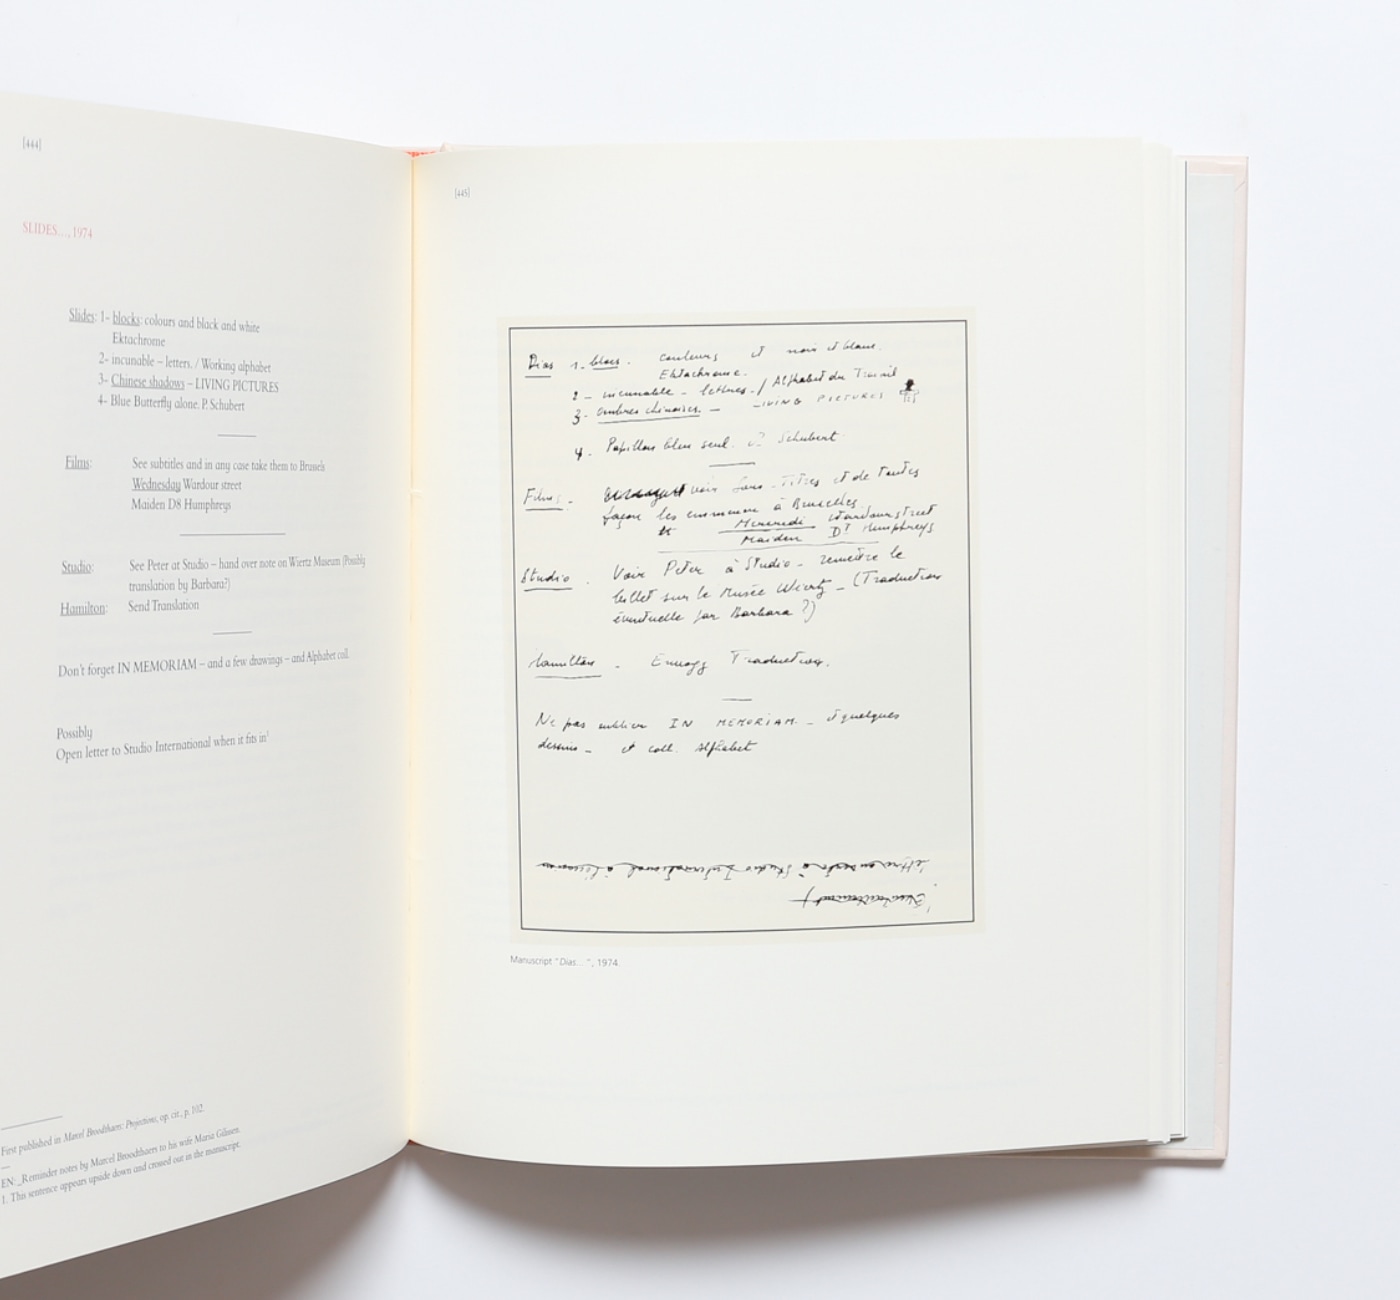 [444]
SLIDES..., 1974
Slides: 1- blocks: colours and black and white
Ektachrome
2- incunable – letters. / Working alphabet
3- Chinese shadows – LIVING PICTURES
4- Blue Butterfly alone. P. Schubert
Films: See subtitles and in any case take them to Brussels
Wednesday Wardour street
Maiden D8 Humphreys
Studio: See Peter at Studio – hand over note on Wiertz Museum (Possibly
translation by Barbara?)
Hamilton: Send Translation
Don't forget IN MEMORIAM – and a few drawings – and Alphabet coll.
Possibly
Open letter to Studio International when it fits in¹
First published in Marcel Broodthaers: Projections, op. cit., p. 102.
EN: _Reminder notes by Marcel Broodthaers to his wife Maria Gilissen.
1. This sentence appears upside down and crossed out in the manuscript.
[445]
Dias 1- blocs. couleurs et noir et blanc.
Ektachrome.
2 – incunable – lettres. / Alphabet du Travail
3- Ombres chinoises. – LIVING PICTURES
4. Papillon bleu seul. Schubert
Films. voir Sous-Titres et de toutes
façons les emmener à Bruxelles.
Mercredi Wardour street
Maiden Humphreys
Studio. Voir Peter à Studio – remettre le
billet sur le Musée Wiertz – (Traduction
éventuelle par Barbara ?)
Hamilton. Envoyer Traduction.
Ne pas oublier IN MEMORIAM. – et quelques
dessins – et coll. Alphabet
à Studio International à
Manuscript "Dias... ", 1974.